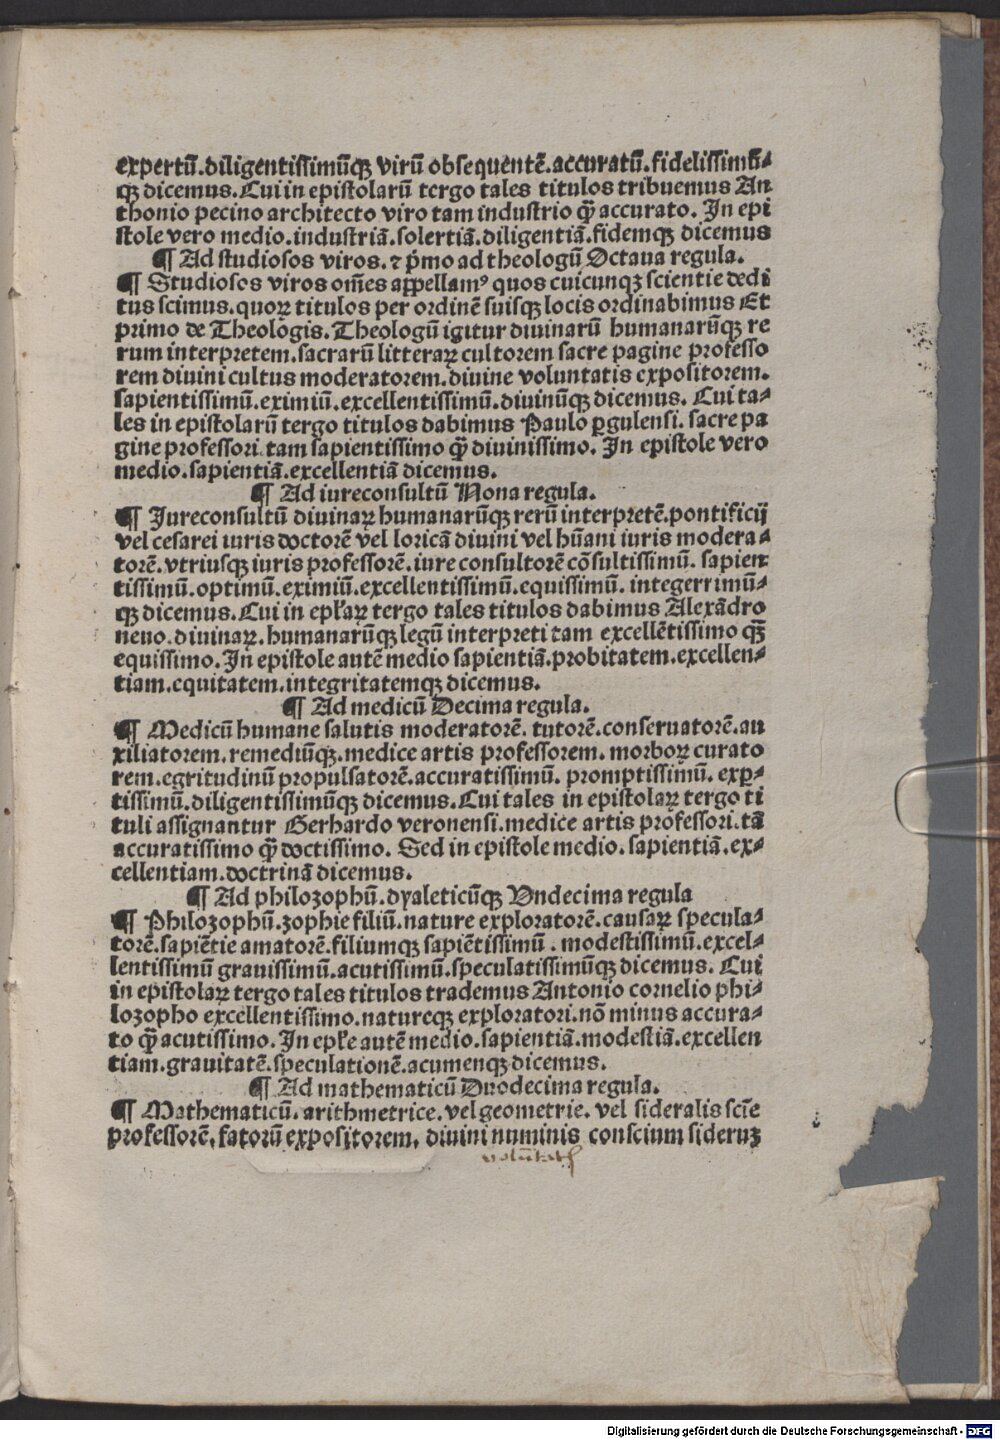 expertū.diligentissimūqꝫ virū obsequentē.accuratū.fidelissimū⸗
qꝫ dicemus.Cui in epistolarū tergo tales titulos tribuemus An
thonio pecino architecto viro tam industrio qꝫ̄ accurato. In epi
stole vero medio.industriā.solertiā.diligentiā.fidemqꝫ dicemus
¶ Ad studiosos viros.⁊ p̄mo ad theologū Octaua regula.
¶ Studiosos viros om̄es appellamꝰ quos cuicunqꝫ scientie dedi
tus scimus.quoꝝ titulos per ordinē suisqꝫ locis ordinabimus Et
primo de Theologis.Theologū igitur diuinarū humanarūqꝫ re
rum interpretem.sacrarū litteraꝝ cultorem sacre pagine professo
rem diuini cultus moderatorem.diuine voluntatis expositorem.
sapientissimū.eximiū.excellentissimū.diuinūqꝫ dicemus. Cui ta⸗
les in epistolarū tergo titulos dabimus Paulo ꝑgulensi. sacre pa
gine professori.tam sapientissimo qꝫ̄ diuinissimo. In epistole vero
medio.sapientiā.excellentiā dicemus.
¶ Ad iureconsultū Nona regula.
¶ Jureconsultū diuinaꝝ humanarūqꝫ rerū interpretē.pontificij
vel cesarei iuris doctorē vel loricā diuini vel hūani iuris modera⸗
torē.vtriusqꝫ iuris professorē.iure consultorē cōsultissimū. sapien
tissimū.optimū.eximiū.excellentissimū.equissimū. integerrimū⸗
qꝫ dicemus.Cui in epl̄aꝝ tergo tales titulos dabimus Alexādro
neuo.diuinaꝝ.humanarūqꝫ legū interpreti tam excellētissimo qꝫ̄
equissimo.In epistole autē medio sapientiā.probitatem.excellen⸗
tiam.equitatem.integritatemqꝫ dicemus.
¶ Ad medicū Decima regula.
¶ Medicū humane salutis moderatorē. tutorē.conseruatorē.au
xiliatorem.remediūqꝫ.medice artis professorem. morboꝝ curato
rem.egritudinū propulsatorē.accuratissimū. promptissimū. exꝑ⸗
tissimū.diligentissimūqꝫ dicemus.Cui tales in epistolaꝝ tergo ti
tuli assignantur Gerhardo veronensi.medice artis professori.tā
accuratissimo qꝫ̄ doctissimo. Sed in epistole medio.sapientiā.ex⸗
cellentiam.doctrinā dicemus.
¶ Ad philozophū.dyaleticūqꝫ Vndecima regula
¶ Philozophū.zophie filiū.nature exploratorē.causaꝝ specula⸗
torē.sapiētie amatorē.filiumqꝫ sapiētissimū.modestissimū.excel⸗
lentissimū grauissimū.acutissimū.speculatissimūqꝫ dicemus. Cui
in epistolaꝝ tergo tales titulos trademus Antonio cornelio phi⸗
lozopho excellentissimo.natureqꝫ exploratori.nō minus accura⸗
to qꝫ̄ acutissimo.In epl̄e autē medio.sapientiā.modestiā.excellen
tiam.grauitatē.speculationē.acumenqꝫ dicemus.
¶ Ad mathematicū Duodecima regula.
¶ Mathematicū.arithmetrice.vel geometrie. vel sideralis scīe
professorē.fatorū expositorem. diuini numinis conscium sideruꝫ
volūtatis
Digitalisierung gefördert durch die Deutsche Forschungsgemeinschaft - DFG